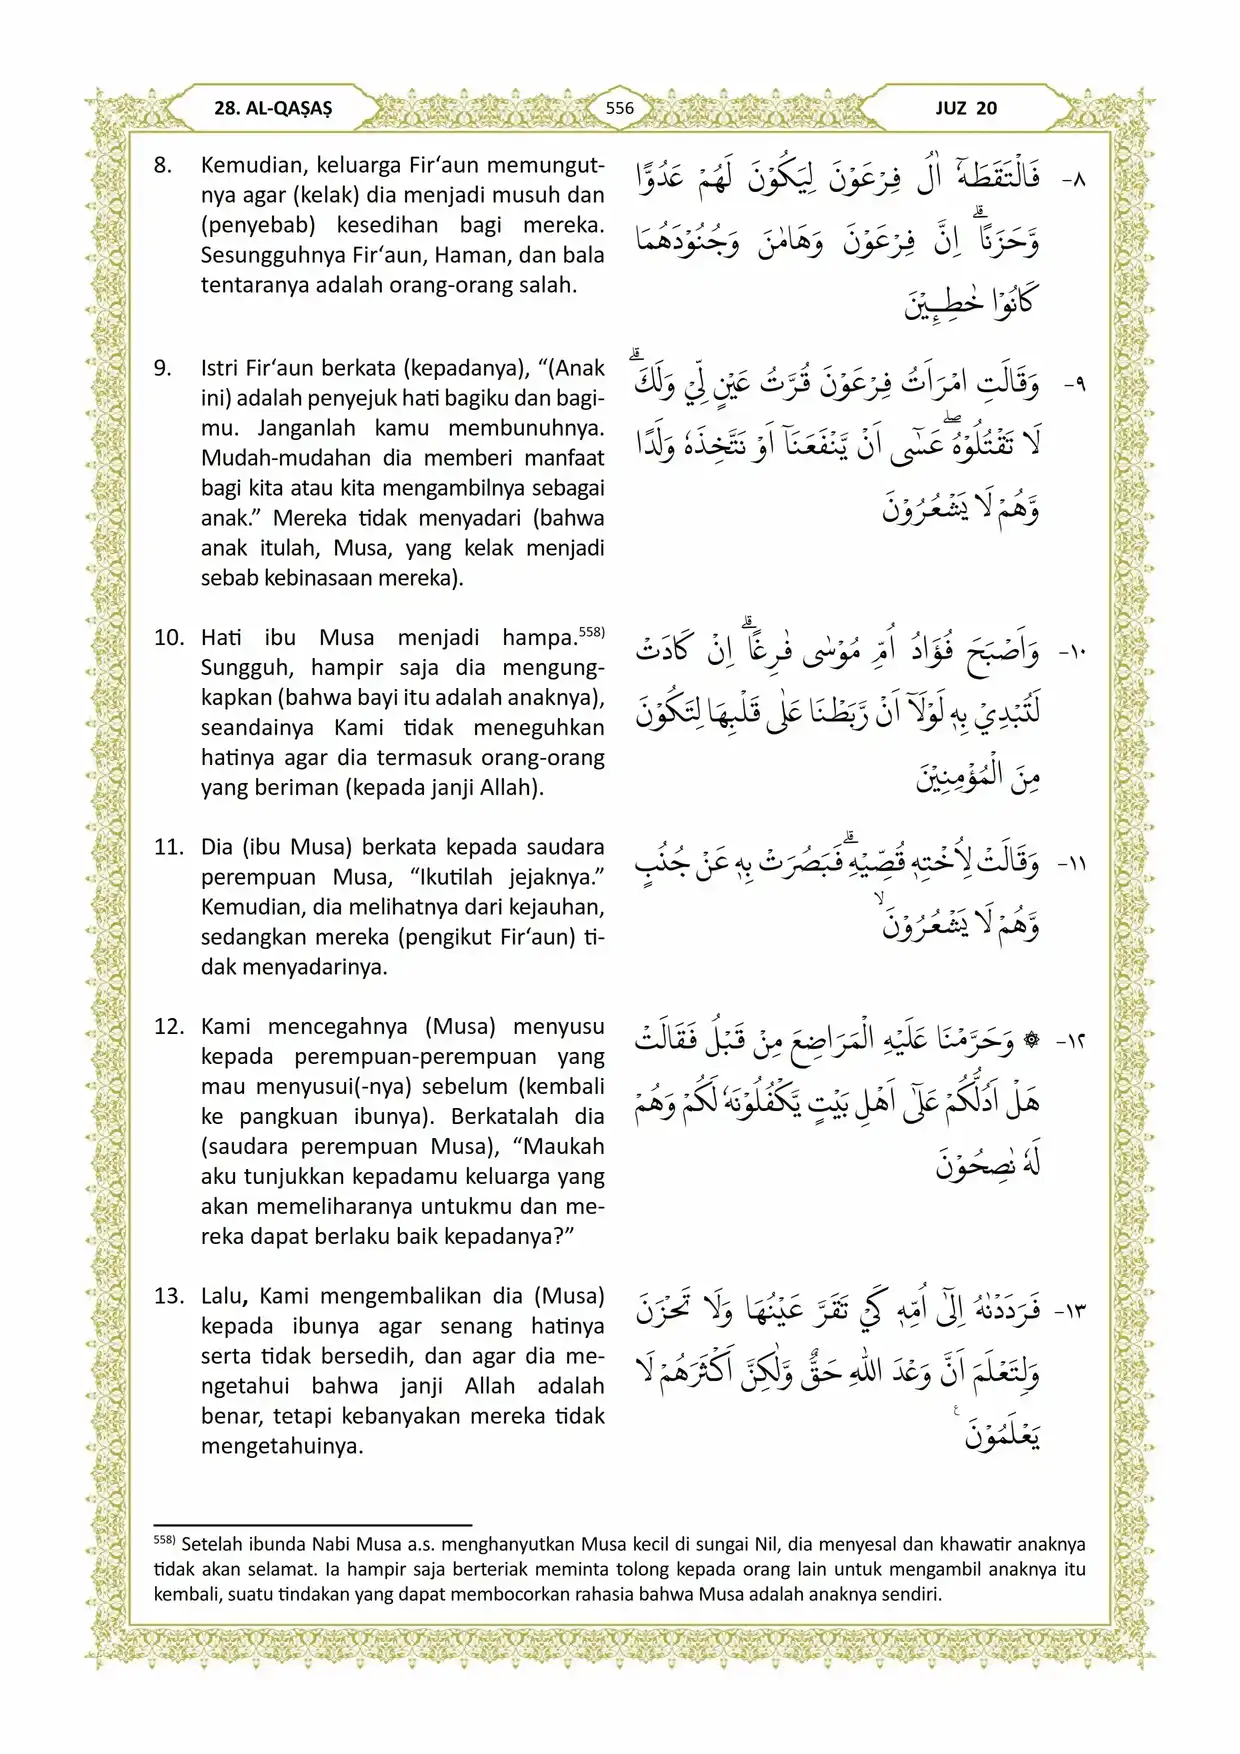 28. AL-QAṢAṢ
556
JUZ 20
8. Kemudian, keluarga Fir‘aun memungut-
nya agar (kelak) dia menjadi musuh dan
(penyebab) kesedihan bagi mereka.
Sesungguhnya Fir‘aun, Haman, dan bala
tentaranya adalah orang-orang salah.
٨- فَالْتَقَطَهٗٓ اٰلُ فِرْعَوْنَ لِيَكُوْنَ لَهُمْ عَدُوًّا
وَّحَزَنًاۗ اِنَّ فِرْعَوْنَ وَهَامٰنَ وَجُنُوْدَهُمَا
كَانُوْا خٰطِـِٕيْنَ
9. Istri Fir‘aun berkata (kepadanya), “(Anak
ini) adalah penyejuk hati bagiku dan bagi-
mu. Janganlah kamu membunuhnya.
Mudah-mudahan dia memberi manfaat
bagi kita atau kita mengambilnya sebagai
anak.” Mereka tidak menyadari (bahwa
anak itulah, Musa, yang kelak menjadi
sebab kebinasaan mereka).
٩- وَقَالَتِ امْرَاَتُ فِرْعَوْنَ قُرَّتُ عَيْنٍ لِّيْ وَلَكَۗ
لَا تَقْتُلُوْهُۖ عَسٰٓى اَنْ يَّنْفَعَنَآ اَوْ نَتَّخِذَهٗ وَلَدًا
وَّهُمْ لَا يَشْعُرُوْنَ
10. Hati ibu Musa menjadi hampa.558)
Sungguh, hampir saja dia mengung-
kapkan (bahwa bayi itu adalah anaknya),
seandainya Kami tidak meneguhkan
hatinya agar dia termasuk orang-orang
yang beriman (kepada janji Allah).
١٠- وَاَصْبَحَ فُؤَادُ اُمِّ مُوْسٰى فٰرِغًاۗ اِنْ كَادَتْ
لَتُبْدِيْ بِهٖ لَوْلَآ اَنْ رَّبَطْنَا عَلٰى قَلْبِهَا لِتَكُوْنَ
مِنَ الْمُؤْمِنِيْنَ
11. Dia (ibu Musa) berkata kepada saudara
perempuan Musa, “Ikutilah jejaknya.”
Kemudian, dia melihatnya dari kejauhan,
sedangkan mereka (pengikut Fir‘aun) ti-
dak menyadarinya.
١١- وَقَالَتْ لِاُخْتِهٖ قُصِّيْهِۗ فَبَصُرَتْ بِهٖ عَنْ جُنُبٍ
وَّهُمْ لَا يَشْعُرُوْنَۙ
12. Kami mencegahnya (Musa) menyusu
kepada perempuan-perempuan yang
mau menyusui(-nya) sebelum (kembali
ke pangkuan ibunya). Berkatalah dia
(saudara perempuan Musa), “Maukah
aku tunjukkan kepadamu keluarga yang
akan memeliharanya untukmu dan me-
reka dapat berlaku baik kepadanya?”
١٢- ۞ وَحَرَّمْنَا عَلَيْهِ الْمَرَاضِعَ مِنْ قَبْلُ فَقَالَتْ
هَلْ اَدُلُّكُمْ عَلٰٓى اَهْلِ بَيْتٍ يَّكْفُلُوْنَهٗ لَكُمْ وَهُمْ
لَهٗ نٰصِحُوْنَ
13. Lalu, Kami mengembalikan dia (Musa)
kepada ibunya agar senang hatinya
serta tidak bersedih, dan agar dia me-
ngetahui bahwa janji Allah adalah
benar, tetapi kebanyakan mereka tidak
mengetahuinya.
١٣- فَرَدَدْنٰهُ اِلٰٓى اُمِّهٖ كَيْ تَقَرَّ عَيْنُهَا وَلَا تَحْزَنَ
وَلِتَعْلَمَ اَنَّ وَعْدَ اللّٰهِ حَقٌّ وَّلٰكِنَّ اَكْثَرَهُمْ لَا
يَعْلَمُوْنَ ࣖ
558) Setelah ibunda Nabi Musa a.s. menghanyutkan Musa kecil di sungai Nil, dia menyesal dan khawatir anaknya
tidak akan selamat. Ia hampir saja berteriak meminta tolong kepada orang lain untuk mengambil anaknya itu
kembali, suatu tindakan yang dapat membocorkan rahasia bahwa Musa adalah anaknya sendiri.